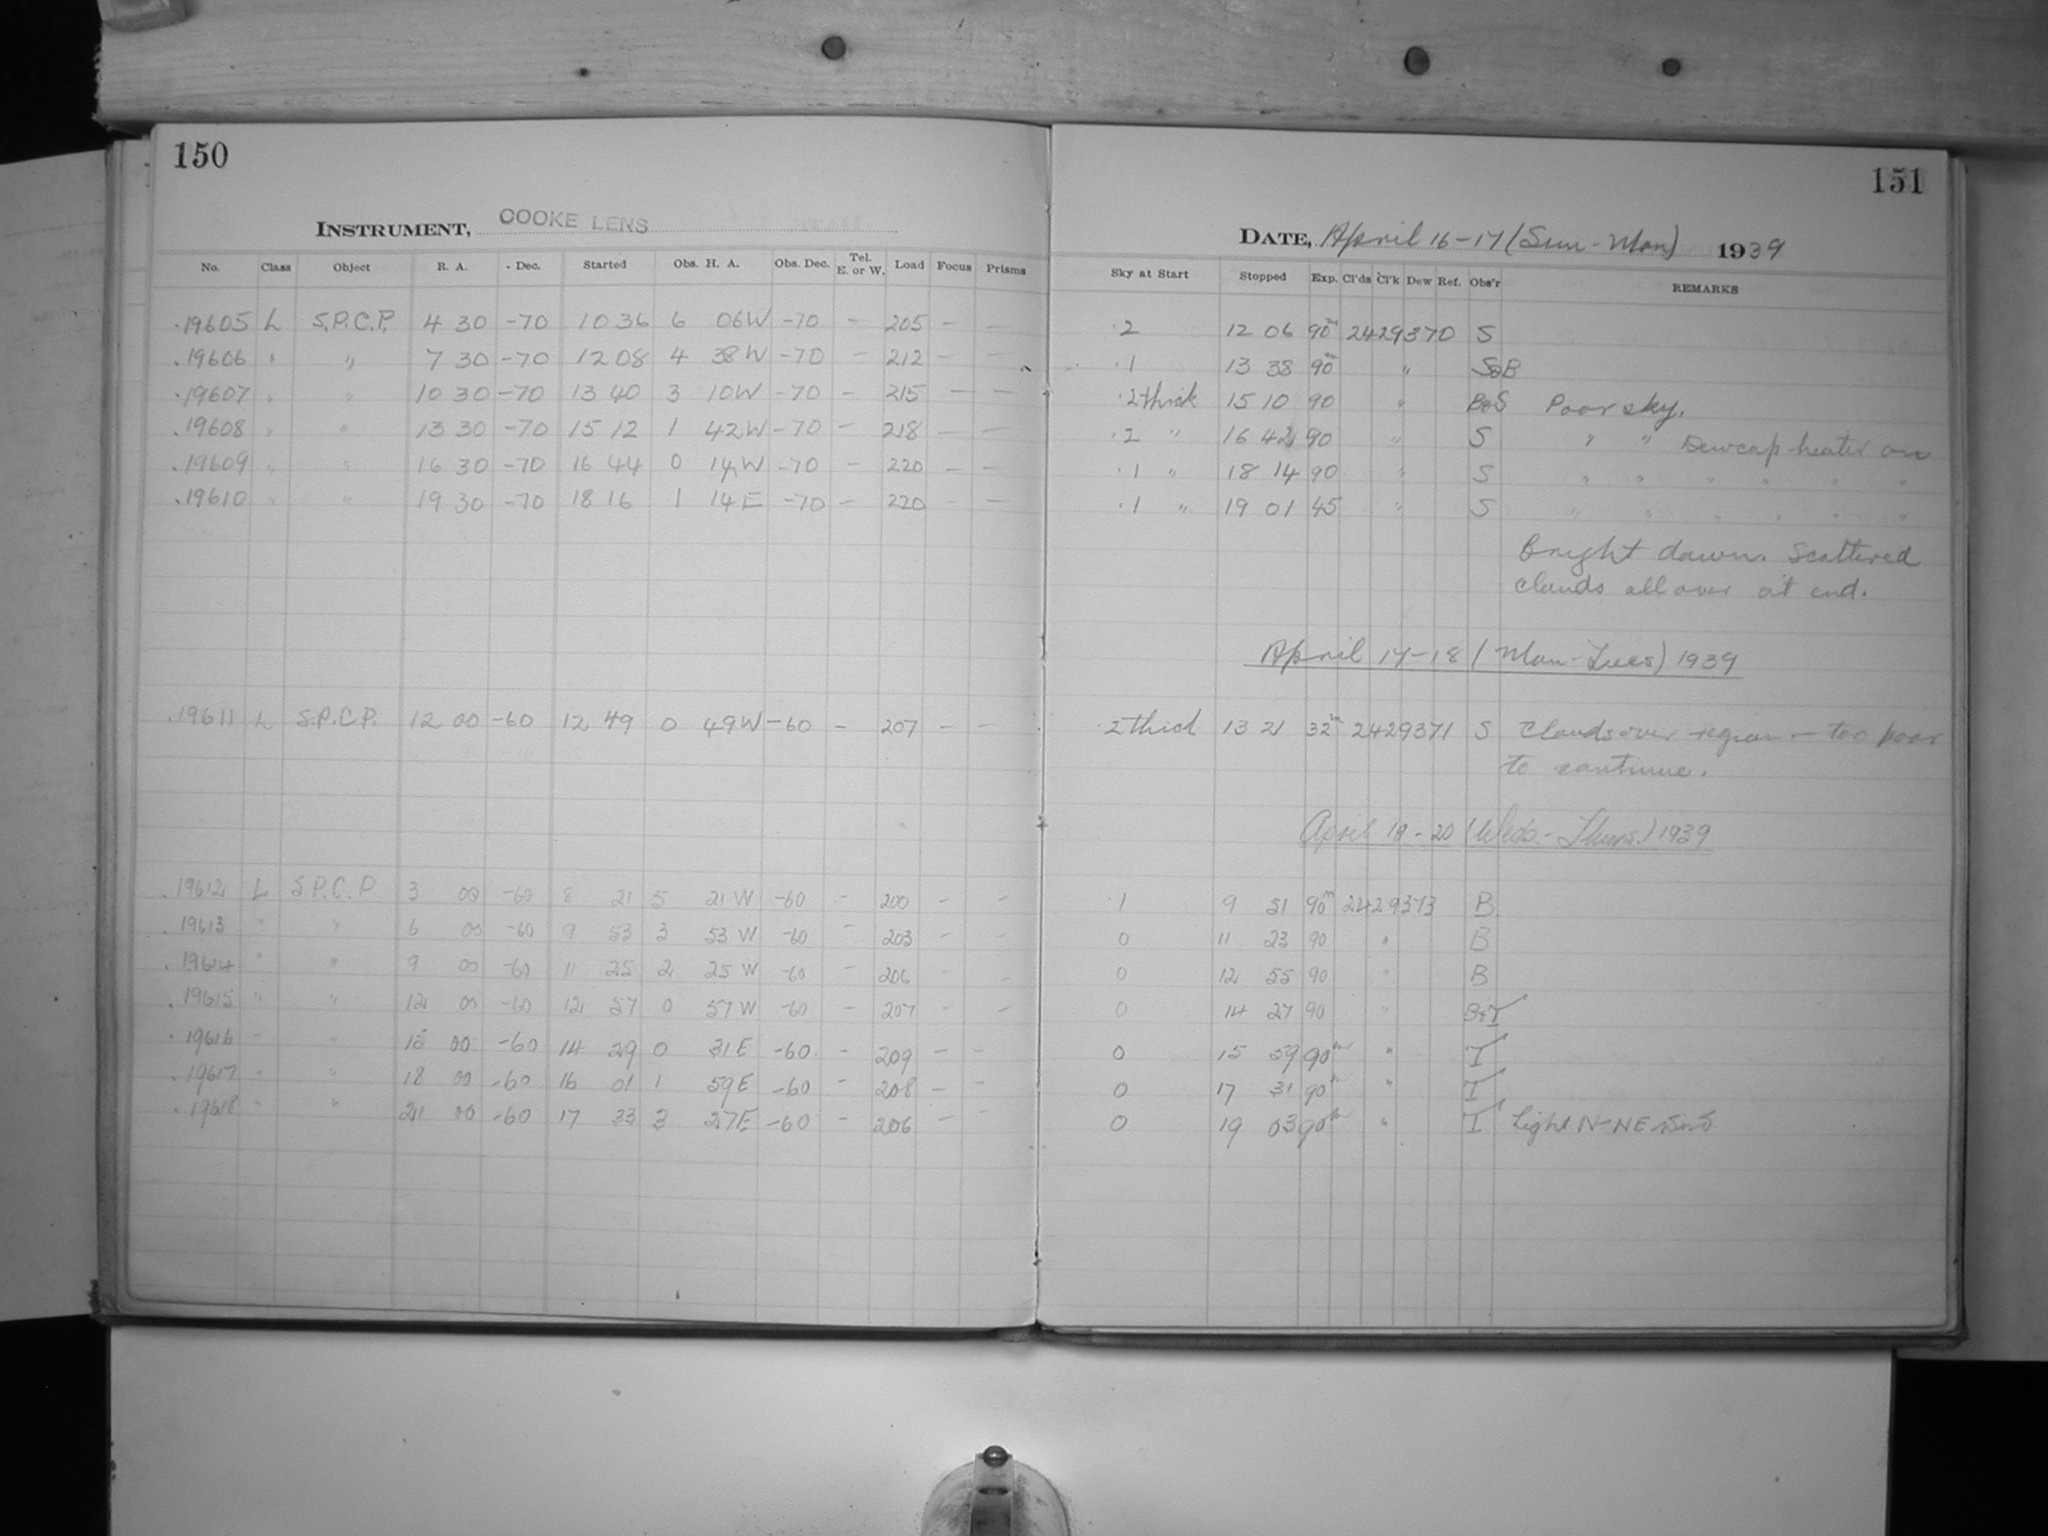 150
INSTRUMENT, COOKE LENS
No. Class Object R. A. Dec. Started Obs. H. A. Obs. Dec. Tel. E. or W. Load Focus Prisms
19605 L S.P.C.P. 4 30 -70 10 36 6 06W -70 - 205 - -
19606 " " 7 30 -70 12 08 4 38W -70 - 212 - -
19607 " " 10 30 -70 13 40 3 10W -70 - 215 - -
19608 " " 13 30 -70 15 12 1 42W -70 - 218 - -
19609 " " 16 30 -70 16 44 0 14W -70 - 220 - -
19610 " " 19 30 -70 18 16 1 14E -70 - 220 - -
19611 L S.P.C.P. 12 00 -60 12 49 0 49W -60 - 207 - -
19612 L S.P.C.P 3 00 -60 8 21 5 21W -60 - 200 - -
19613 " " 6 00 -60 9 53 3 53W -60 - 203 - -
19614 " " 9 00 -60 11 25 2 25W -60 - 206 - -
19615 " " 12 00 -60 12 57 0 57W -60 - 207 - -
19616 " " 15 00 -60 14 29 0 31E -60 - 209 - -
19617 " " 18 00 -60 16 01 1 59E -60 - 208 - -
19618 " " 21 00 -60 17 33 3 27E -60 - 206 - -
151
DATE, April 16-17 (Sun-Mon) 1939
Sky at Start Stopped Exp. Cl'ds Cl'k Dew Ref. Obs'r REMARKS
.2 12 06 90m 2429370 S
.1 13 38 90m " S&B
.2 thick 15 10 90 " B&S Poor sky.
.2 " 16 42 90 " S " " Dewcap heater on
.1 " 18 14 90 " S " " " " " "
.1 " 19 01 45 " S " " " " " "
Bright dawn. Scattered
clouds all over at end.
April 17-18 (Mon-Tues) 1939
.2 thick 13 21 32m 2429371 S Clouds over region - too poor
to continue.
April 19-20 (Weds.-Thurs.) 1939
.1 9 51 90m 2429373 B
0 11 23 90 " B
0 12 55 90 " B
0 14 27 90 " B&T
0 15 59 90m " T
0 17 31 90m " T
0 19 03 90m " T Light N-NE wind